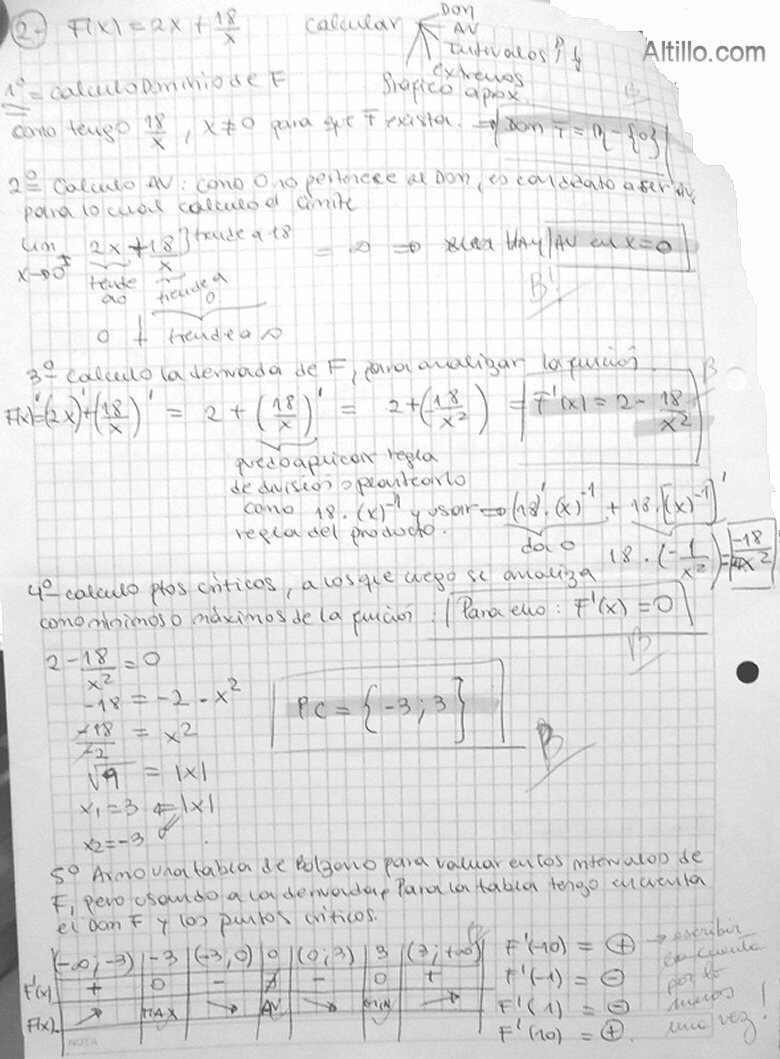 2- F(x) = 2x + 18/x calcular Dom
AV
Intervalos ↑ y ↓
extremos
Gráfico aprox.
Altillo.com
1º = calculo Dominio de F
B
como tengo 18/x, x≠0 para que F exista. → Dom F = ℝ - {0}
2º Calculo AV: como 0 no pertenece al Dom, es candidato a ser AV,
para lo cual calculo el límite
Lim x→0± 2x + 18/x } tiende a 18 = ∞ ⇒ HAY AV en x=0
tiende a 0 tiende a 0
B!
0 + tiende a ∞
3º calculo la derivada de F, para analizar la función.
B
F(x)' = (2x)' + (18/x)' = 2 + (18/x)' = 2 + (-18/x²) = F'(x) = 2 - 18/x²
puedo aplicar regla
de división o plantearlo
como 18 . (x)⁻¹ y usar ⇒ (18)' . (x)⁻¹ + 18 . [(x)⁻¹]'
regla del producto.
da 0 18 . (-1/x²) = -18/x²
4º calculo ptos críticos, a los que luego se analiza
como mínimos o máximos de la función: Para ello: F'(x) = 0
B
2 - 18/x² = 0
-18 = -2 . x²
PC = {-3; 3}
-18/-2 = x²
B
√9 = |x|
x₁ = 3 ← |x|
x₂ = -3
5º Armo una tabla de Bolzano para valuar en los intervalos de
F, pero usando a la derivada. Para la tabla tengo en cuenta
el Dom F y los puntos críticos.
(-∞; -3) -3 (-3, 0) 0 (0; 3) 3 (3; +∞)
F'(x) + 0 - ∄ - 0 +
F(x) ↗ MAX ↘ AV ↘ MIN ↗
F'(-10) = ⊕ → escribir
F'(-1) = ⊖ la cuenta
F'(1) = ⊖ por lo menos
F'(10) = ⊕. una vez!
NOTA